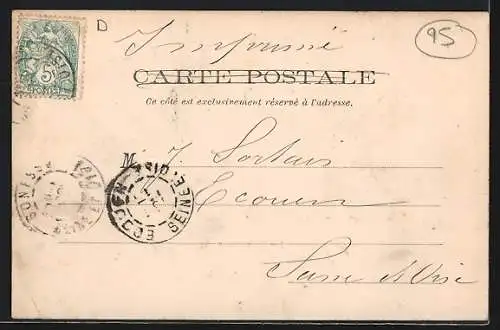 D
95
Imprimé
CARTE POSTALE
Ce côté est exclusivement réservé à l'adresse.
5
M. J. Sortais
Ecouen
Seine et Oise
ECOUEN
SEINE-ET-OISE